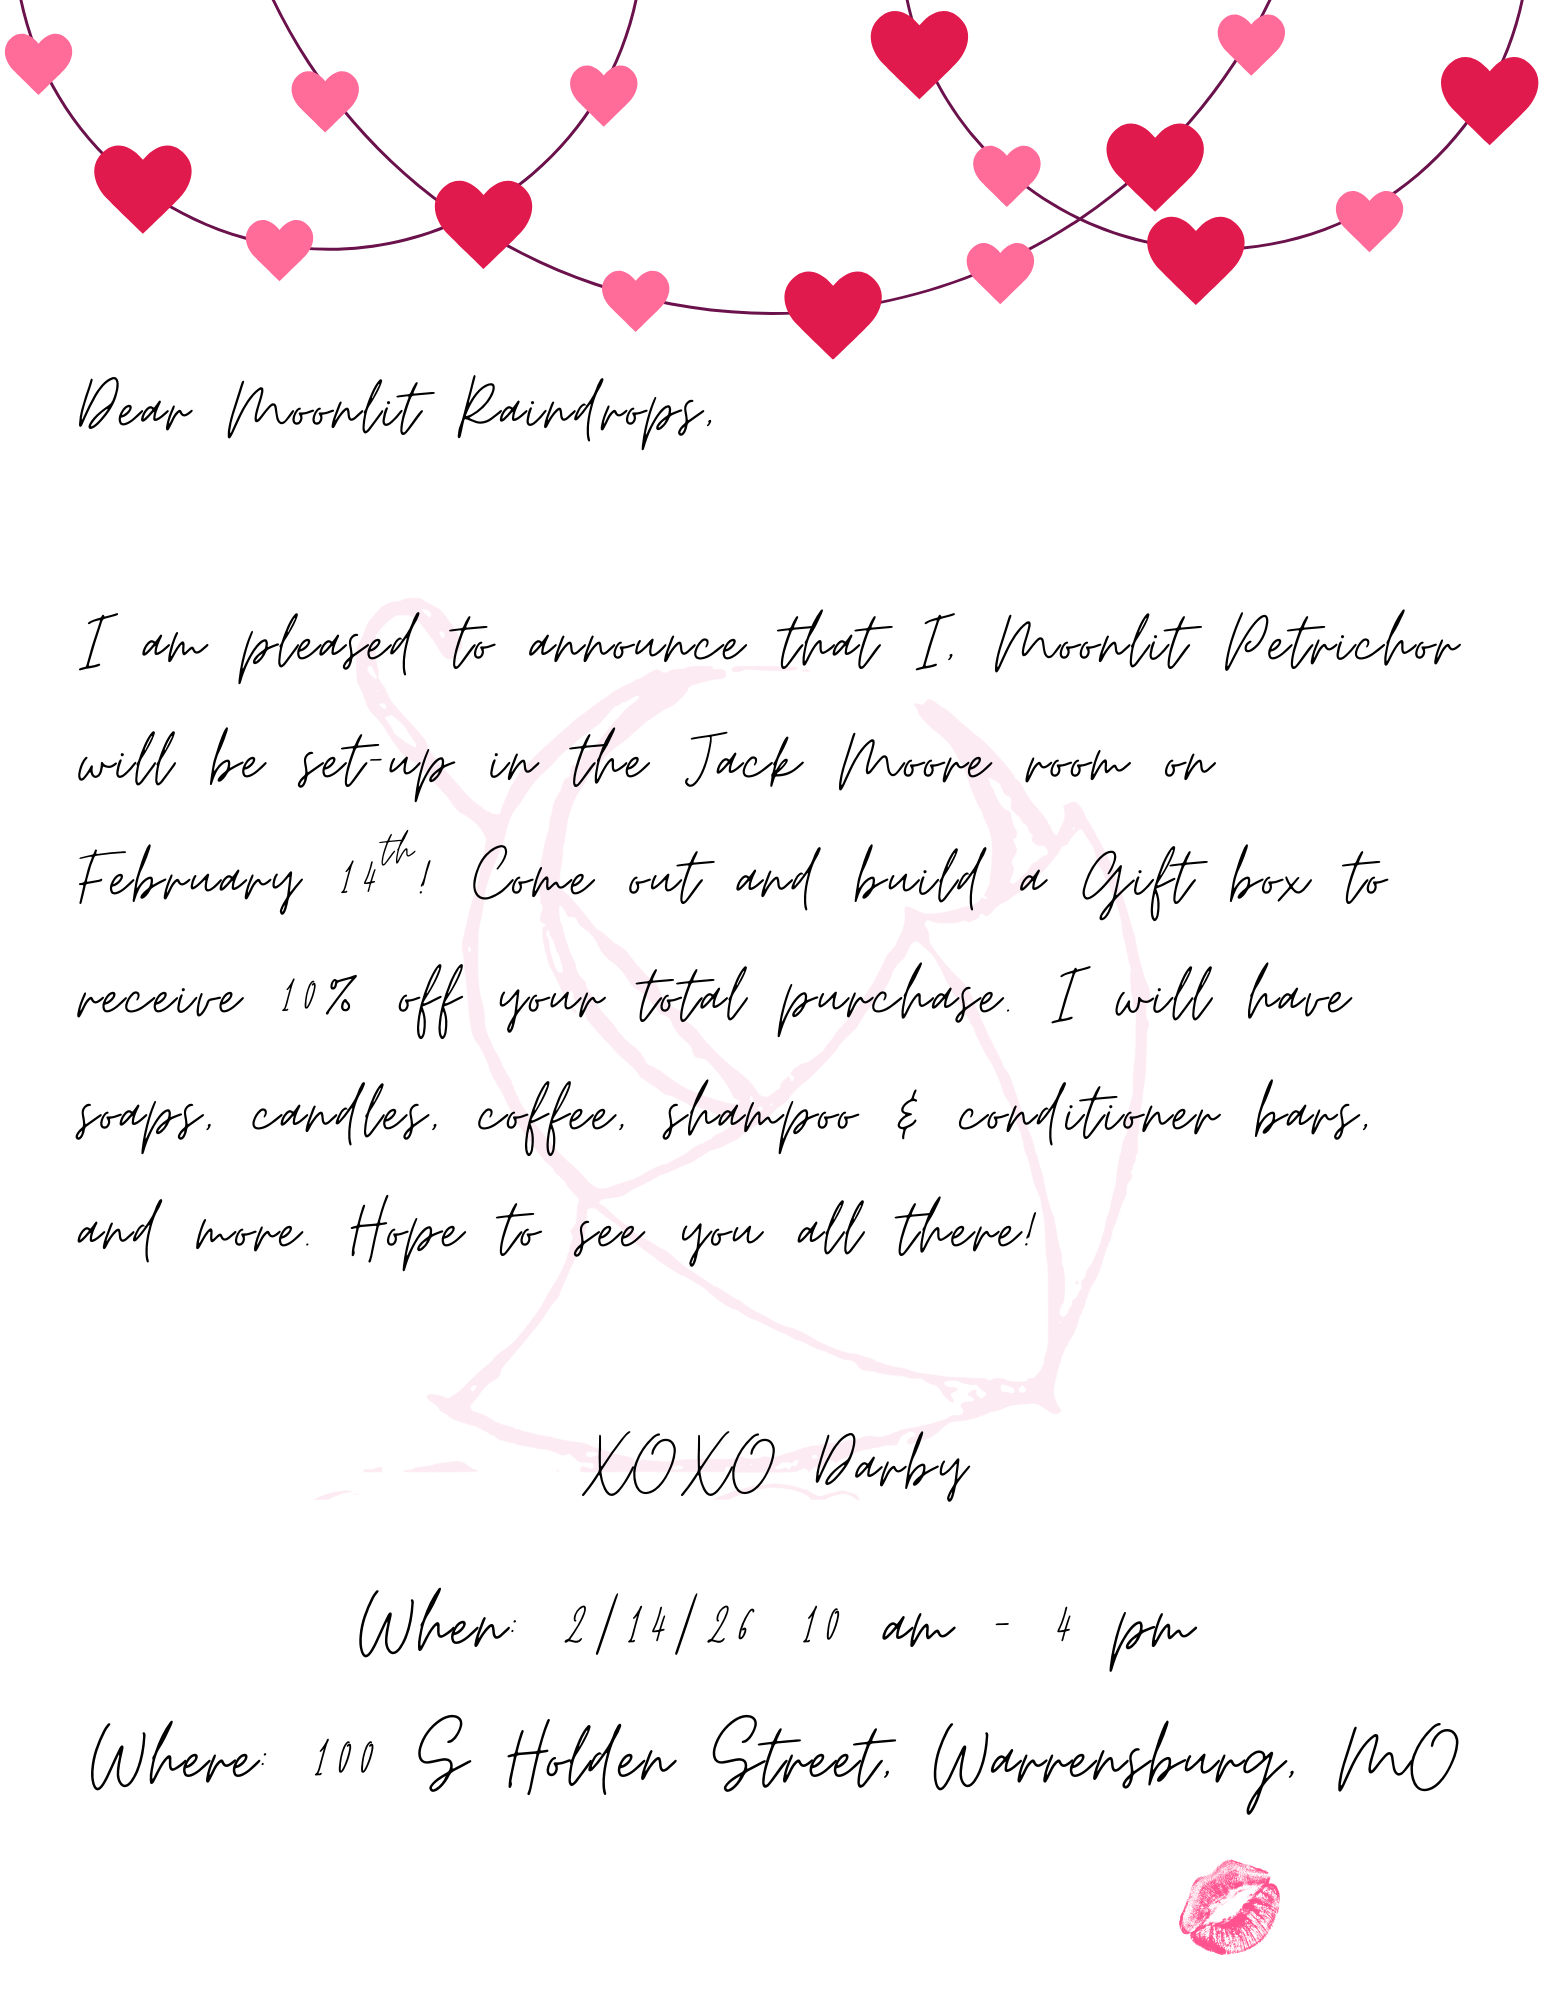 Dear Moonlit Raindrops,
I am pleased to announce that I, Moonlit Petrichor
will be set-up in the Jack Moore room on
February 14th! Come out and build a Gift box to
receive 10% off your total purchase. I will have
soaps, candles, coffee, shampoo & conditioner bars,
and more. Hope to see you all there!
XOXO Darby
When: 2/14/26 10 am - 4 pm
Where: 100 S Holden Street, Warrensburg, MO